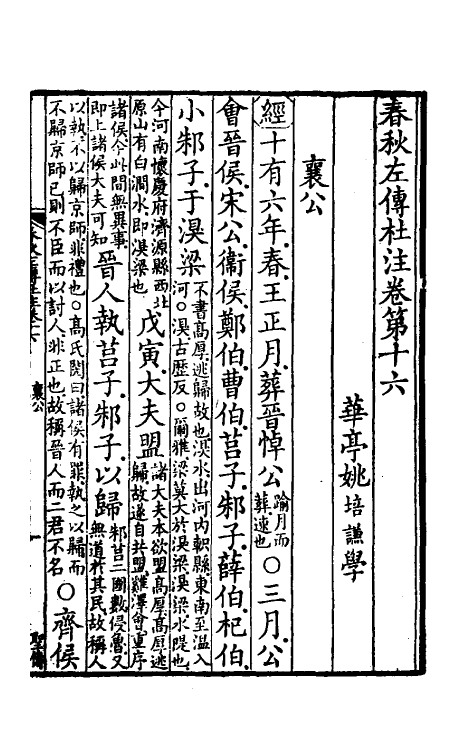 春秋左傳杜注卷第十六
華亭姚培謙學
襄公
經十有六年春王正月葬晉悼公踰月而葬速也○三月公
會晉侯宋公衞侯鄭伯曹伯莒子邾子薛伯杞伯
小邾子于溴梁不書高厚逃歸故也溴水出河內軹縣東南至溫入河○溴古歴反○爾雅梁莫大於溴梁溴梁水隄也
今河南懷慶府濟源縣西北原山有白澗水即溴梁也戊寅大夫盟諸大夫本欲盟高厚高厚逃歸故遂自共盟雞澤會重序
諸侯今此間無異事即上諸侯大夫可知晉人執莒子邾子以歸邾莒二國數侵魯又無道於其民故稱人
以執不以歸京師非禮也○高氏閌曰諸侯有罪執之以歸而不歸京師已則不臣而以討人非正也故稱晉人而二君不名○齊侯
襄公